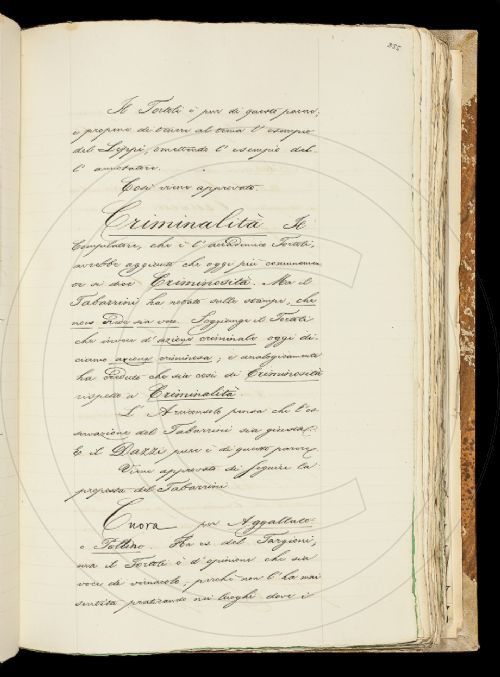 355
Il Tortoli è pur di questo parere,
e propone di trarre al tema l'esempio
del Lippi, omettendo l'esempio del-
l'annotatore.
Così viene approvato.
Criminalità Il
Compilatore, che è l'accademico Tortoli,
avrebbe aggiunto che oggi più comunemen
te si dice Criminosità. Ma il
Tabarrini ha notato sulle stampe, che
non crede sia voce. Soggiunge il Tortoli
che invece di azione criminale oggi di-
ciamo azione criminosa; e analogicamente
ha creduto che sia così di Criminosità
rispetto a Criminalità.
L'Arciconsolo pensa che l'os-
servazione del Tabarrini sia giusta.
E il Dazzi pure è di questo parere.
Viene approvato di seguire la
proposta del Tabarrini.
Cuora per Aggallato
e Pollino. Ha es. del Targioni,
ma il Tortoli è d'opinione che sia
voce di vernacolo, perché non l'ha mai
sentita praticando nei luoghi dove è